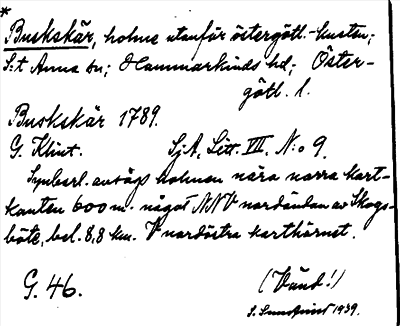 *
Buskskär, holme utanför östergötl.-kusten;
S:t Anna sn; Hammarkinds hd; Öster-
götl. l.
Buskskär 1789.
G. Klint. SjA, Litt. VII, N:o 9.
Synberl. avsågs holmen nära norra kart-
kanten 600 m. något NNV nordändan av Skogs-
böte, bel. 8,8 km. V nordöstra karthörnet.
G. 46. (Vänd!)
S. Sundquist 1939.